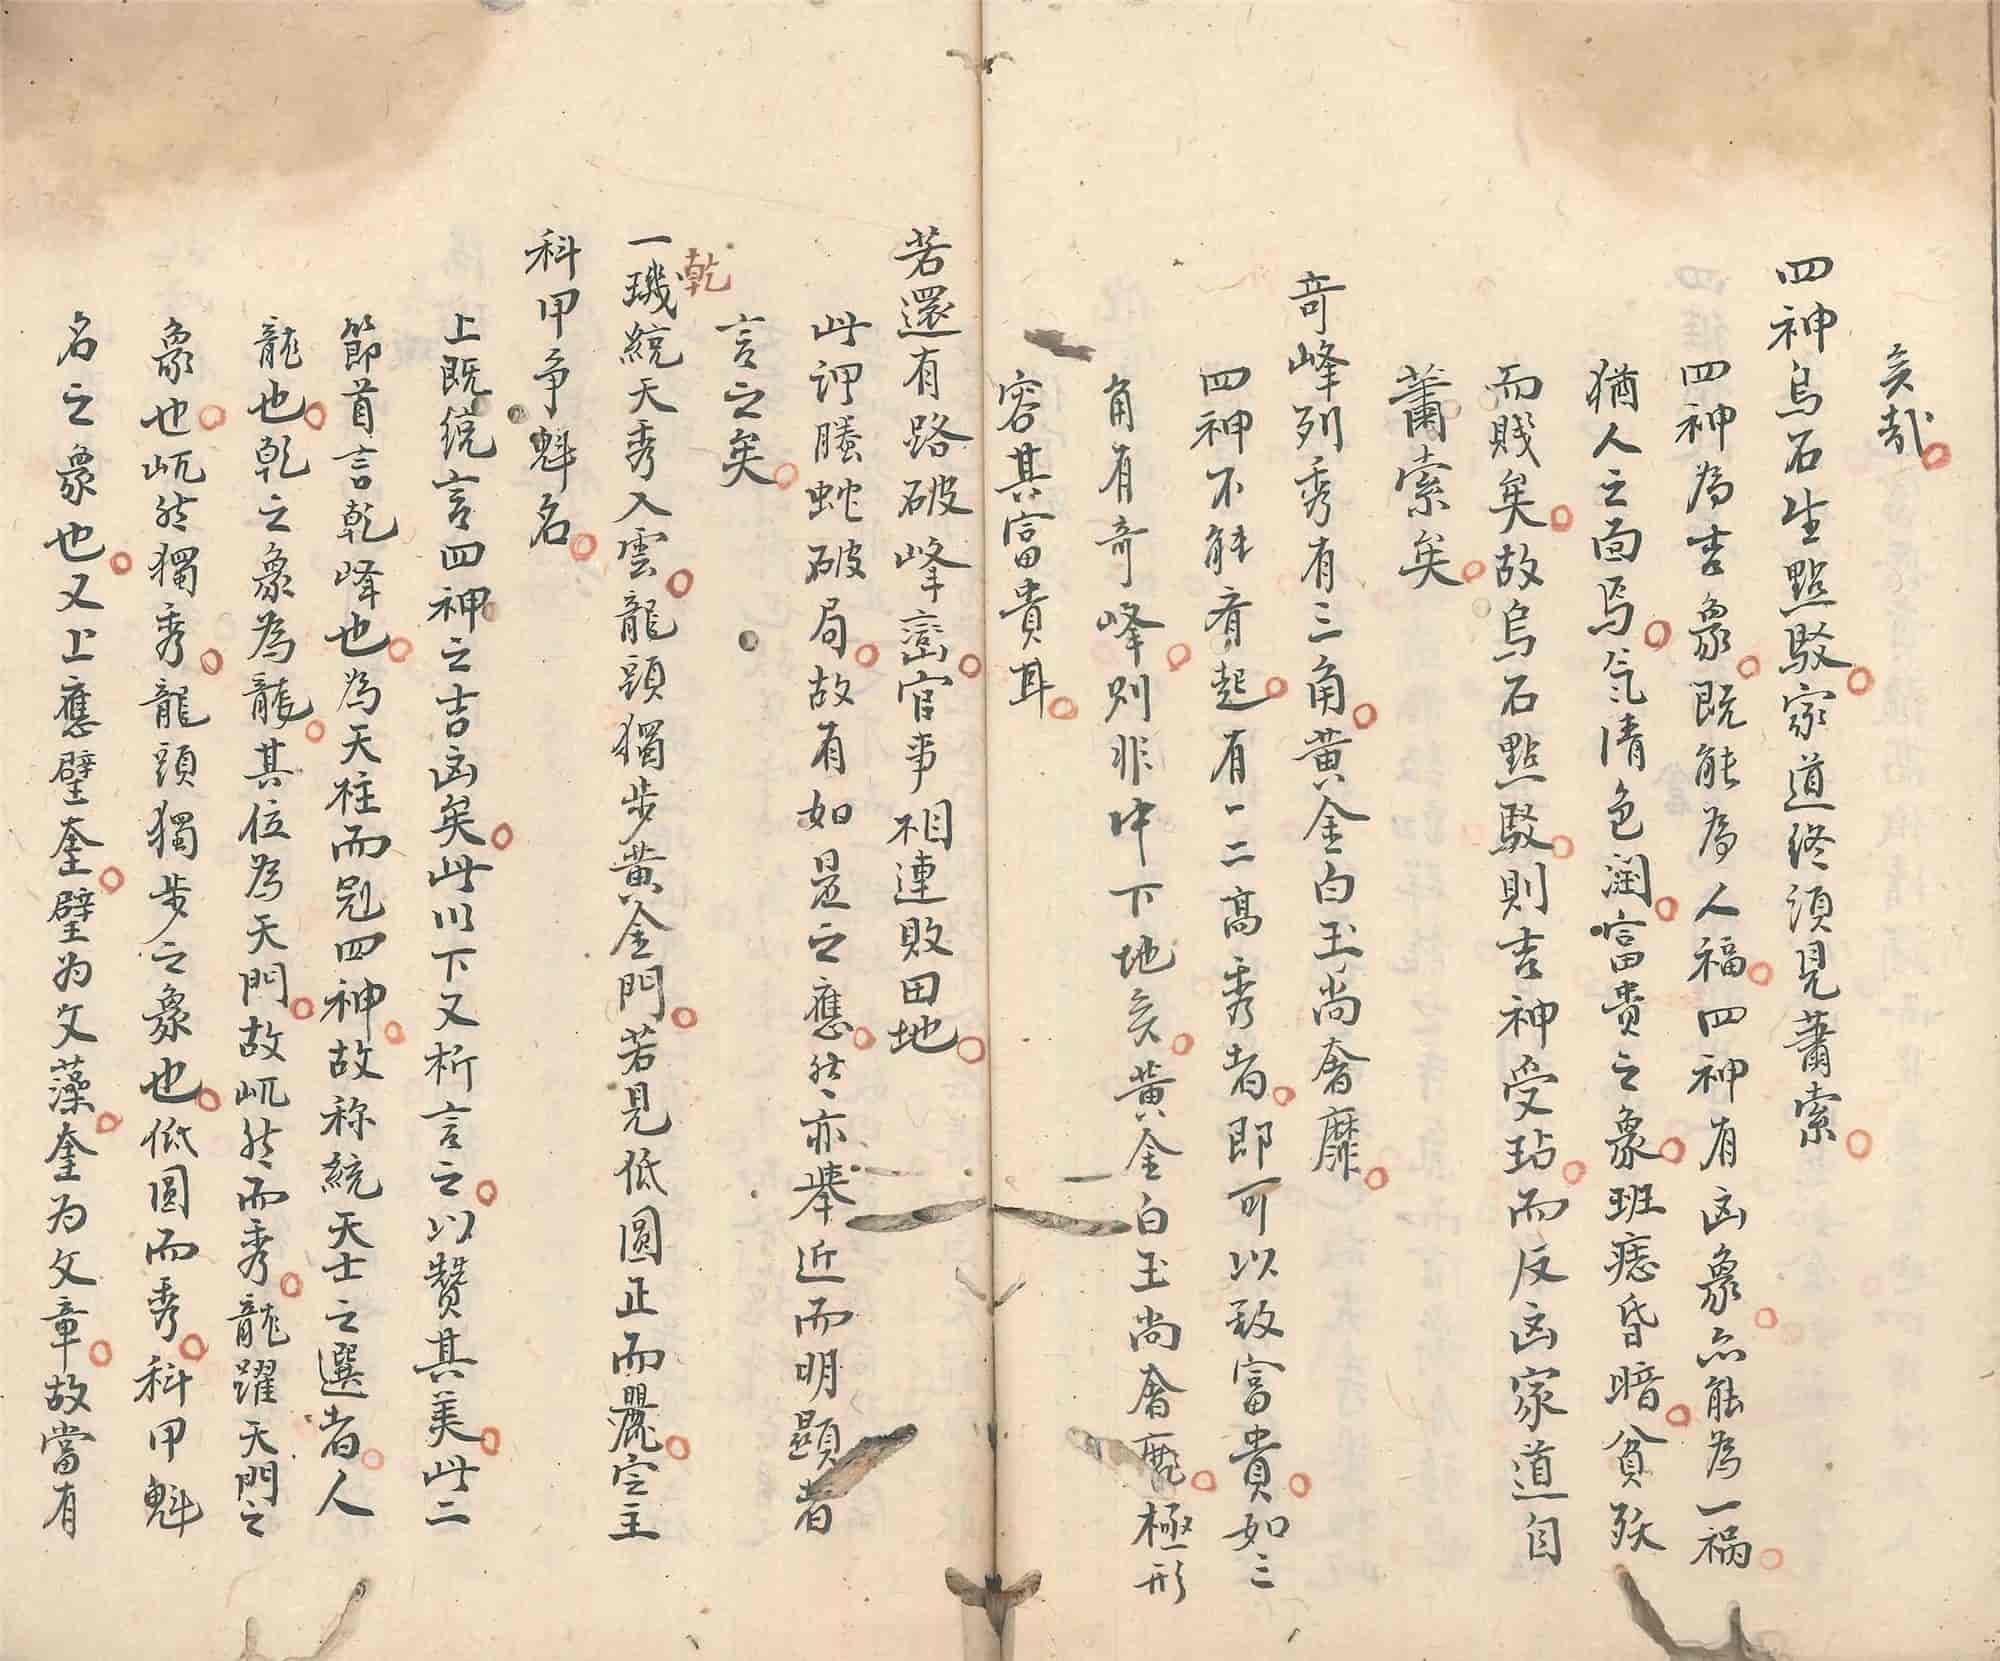 矣哉
四神烏石生點駁家道終須見蕭索
四神為吉象既能為人福四神有凶象亦能為一禍
猶人之面焉气清色潤富貴之象班痣昏暗貧殀
而賤矣故烏石點駁則吉神受玷而反凶家道自
蕭索矣
奇峰列秀有三角黃金白玉尚奢靡
四神不能齊起有一二高秀者即可以致富貴如三
角有奇峰則非中下地矣黃金白玉尚奢靡極形
容其富貴耳
若還有路破峰巒官事相連敗田地
此謂螣蛇破局故有如是之應然亦舉近而明顯者
言之矣
乾
一璣統天秀入雲龍頭獨步黃金門若見低圓正而麗定主
科甲爭魁名
上既統言四神之吉凶矣此以下又析言之以贊其美此二
節首言乾峰也為天柱而冠四神故称統天士之選者人
龍也乾之象為龍其位為天門故屼然而秀龍躍天門之
象也屼然獨秀龍頭獨步之象也低圓而秀科甲魁
名之象也又上應壁奎壁为文藻奎为文章故當有